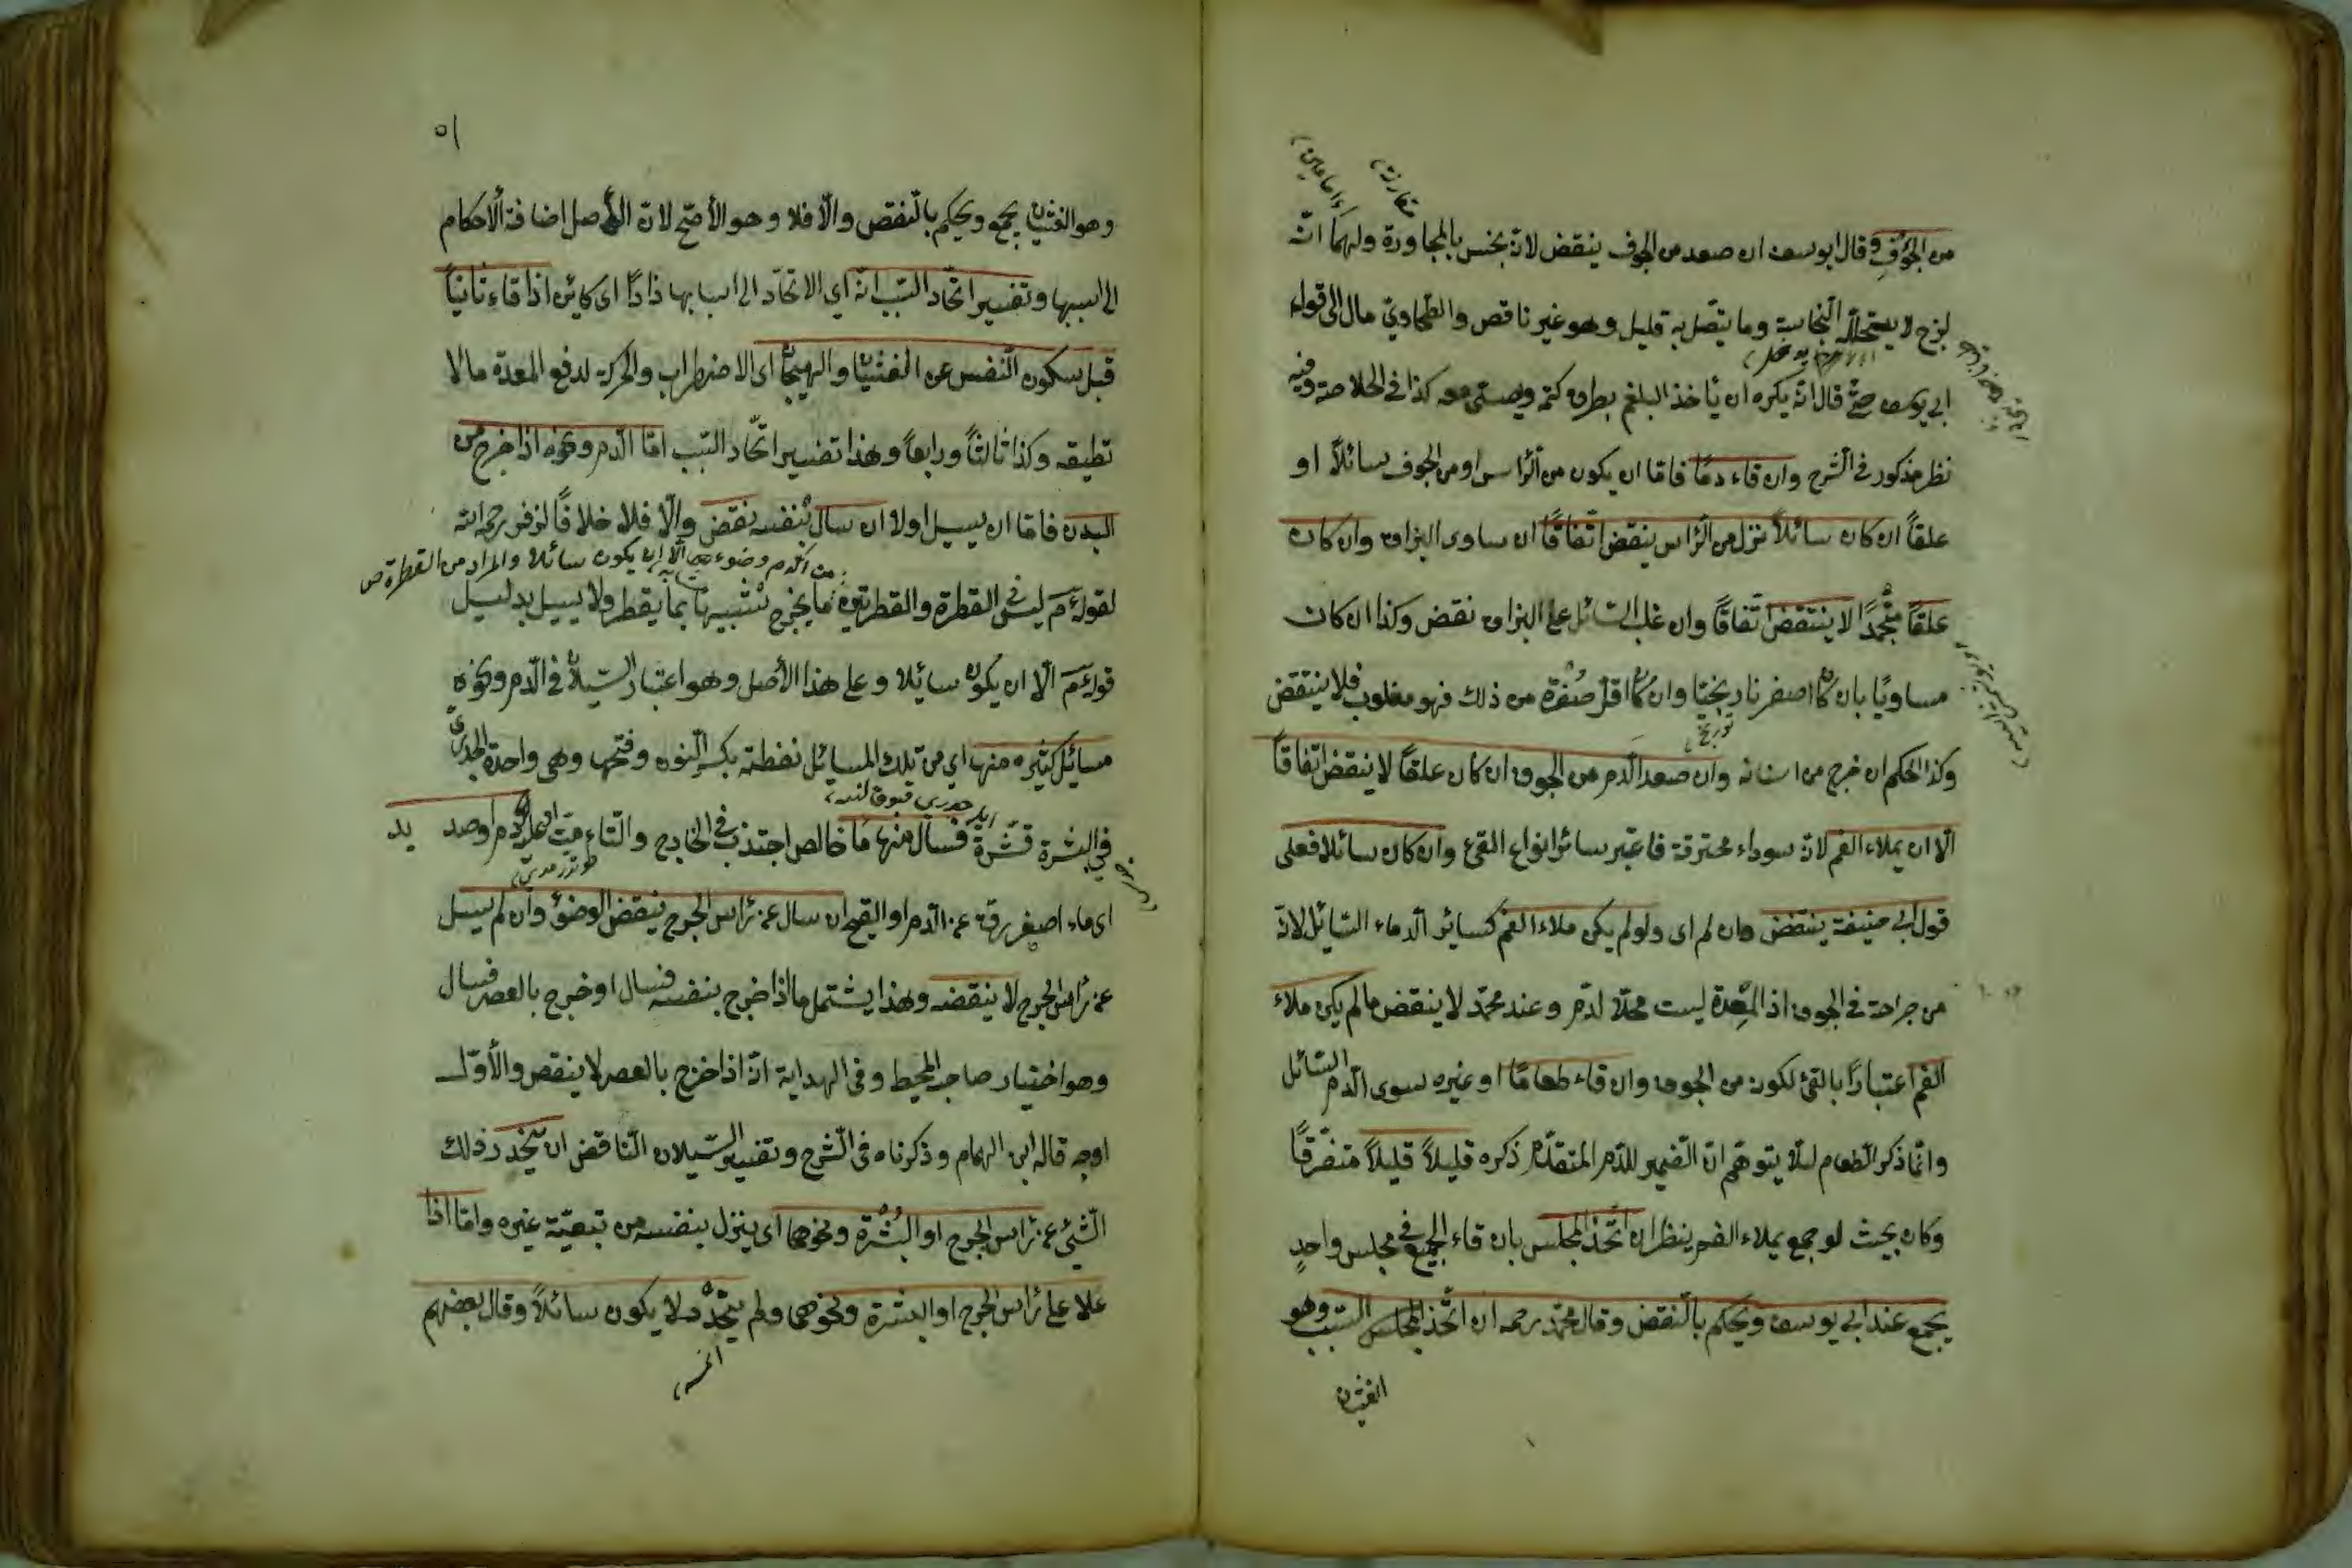 من الجوف وقال ابو يوسف ان صعد من الجوف ينقض لانه نجس بالمجاورة ولهما انه
لزج لا يتخلله النجاسة وما يتصل به قليل وهو غير ناقض والطحاوي مال الى قول
ابي يوسف حتى قال انه يكره ان يأخذ البلغم بطرف كمه ويصلي معه كذا في الخلاصة وفيه
نظر مذكور في الشرح وان قاء دمًا فاما ان يكون من الرأس او من الجوف سائلاً او
علقاً ان كان سائلاً نزل من الرأس ينقض اتفاقًا ان ساوى البزاق وان كان
علقاً متجمدًا لا ينتقض اتفاقًا وان غلب السائل على البزاق نقض وكذا ان كان
مساويًا بان كان اصفر نارنجيًا وان كان اقل صفرة من ذلك فهو مغلوب فلا ينتقض
وكذا الحكم ان خرج من اسنانه وان صعد الدم من الجوف ان كان علقًا لا ينقض اتفاقاً
الا ان يملاء الفم لانه سوداء محترقة فاعتبر سائر انواع القئ وان كان سائلا فعلى
قول ابي حنيفة ينتقض وان لم اى ولو لم يكن ملاء الفم كسائر الدماء السائل لانه
من جراحة في الجوف اذ المعدة ليست محلا لدم وعند محمد لا ينقض ما لم يكن ملاء
الفم اعتبارًا بالقئ لكونه من الجوف وان قاء طعامًا او غيره سوى الدم السائل
وانما ذكر الطعام لئلا يتوهم ان الضمير للدم المتقدم ذكره قليلاً قليلاً متفرقًا
وكان بحيث لو جمع يملاء الفم ينظر ان اتخذ المجلس بان قاء الجميع في مجلس واحدٍ
يجمع عند ابي يوسف ويحكم بالنقض وقال محمد رحمه ان اتخذ المجلس السبب وهو
الغثيان
٥١
وهو الغثيان يجمع ويحكم بالنقض والا فلا وهو الأصح لان الأصل اضافة الأحكام
الى اسببها وتفسير اتحاد السبب انه اي الاتحاد الى اسبابها ذادًا اى كائن اذا قاء ثانياً
قبل سكون النفس عن الغثيان والهيجان اى الاضطراب والحركة لدفع المعدة ما لا
تطيقه وكذا ثالثاً ورابعاً وهذا تفسير اتحاد السبب اما الدم ونحوه اذا خرج من
البدن فاما ان يسيل اولا ان سال بنفسه نقض والا فلا خلافًا لزفر رحمه الله
من الدم وضوء الا ان يكون سائلا والمراد من القطرة ص
لقوله عم ليس في القطرة والقطرتين ما يخرج تشبيها بما يقطر ولا يسيل بدليل
قوله عم الا ان يكون سائلا وعلى هذا الأصل وهو اعتبار السيلان في الدم ونحوه
مسائل كثيره منها اي من تلك المسائل نفطة بكسر النون وفتحها وهى واحدة الجدري
في البشرة قشرة فسال منها ماء خالص اجتذب في الخارج والتاء او دم او صديد
اى ماء اصفر رقة عن الدم او القيح ان سال عن رأس الجرح ينقض الوضوء وان لم يسيل
عن رأس الجرح لا ينقضه وهذا يشتمل ما اذا خرج بنفسه فسال او خرج بالعصر فسال
وهو اختيار صاحب المحيط وفى الهداية انه اذا خرج بالعصر لا ينقض والأول
اوجه قاله ابن الهمام وذكرناه فى الشرح وتفسير السيلان الناقض ان يتحدر ذلك
الشئ عن رأس الجرح او البشرة ونحوهما اى ينزل بنفسه من تبعية غيره واما اذا
علا على رأس الجرح او البشرة ونحوهما ولم يتحدر لا يكون سائلاً وقال بعضهم